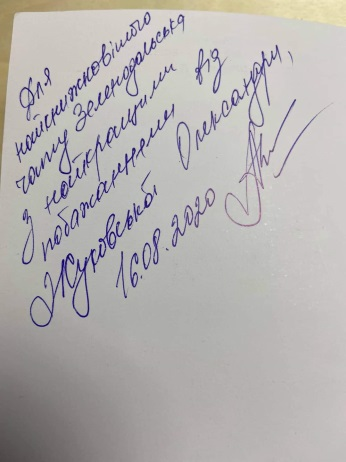 Для
найкнижновішого
чату Зеленодольська
з найкращими
побажаннями від
Жуковської Олександри,
16.08.2020